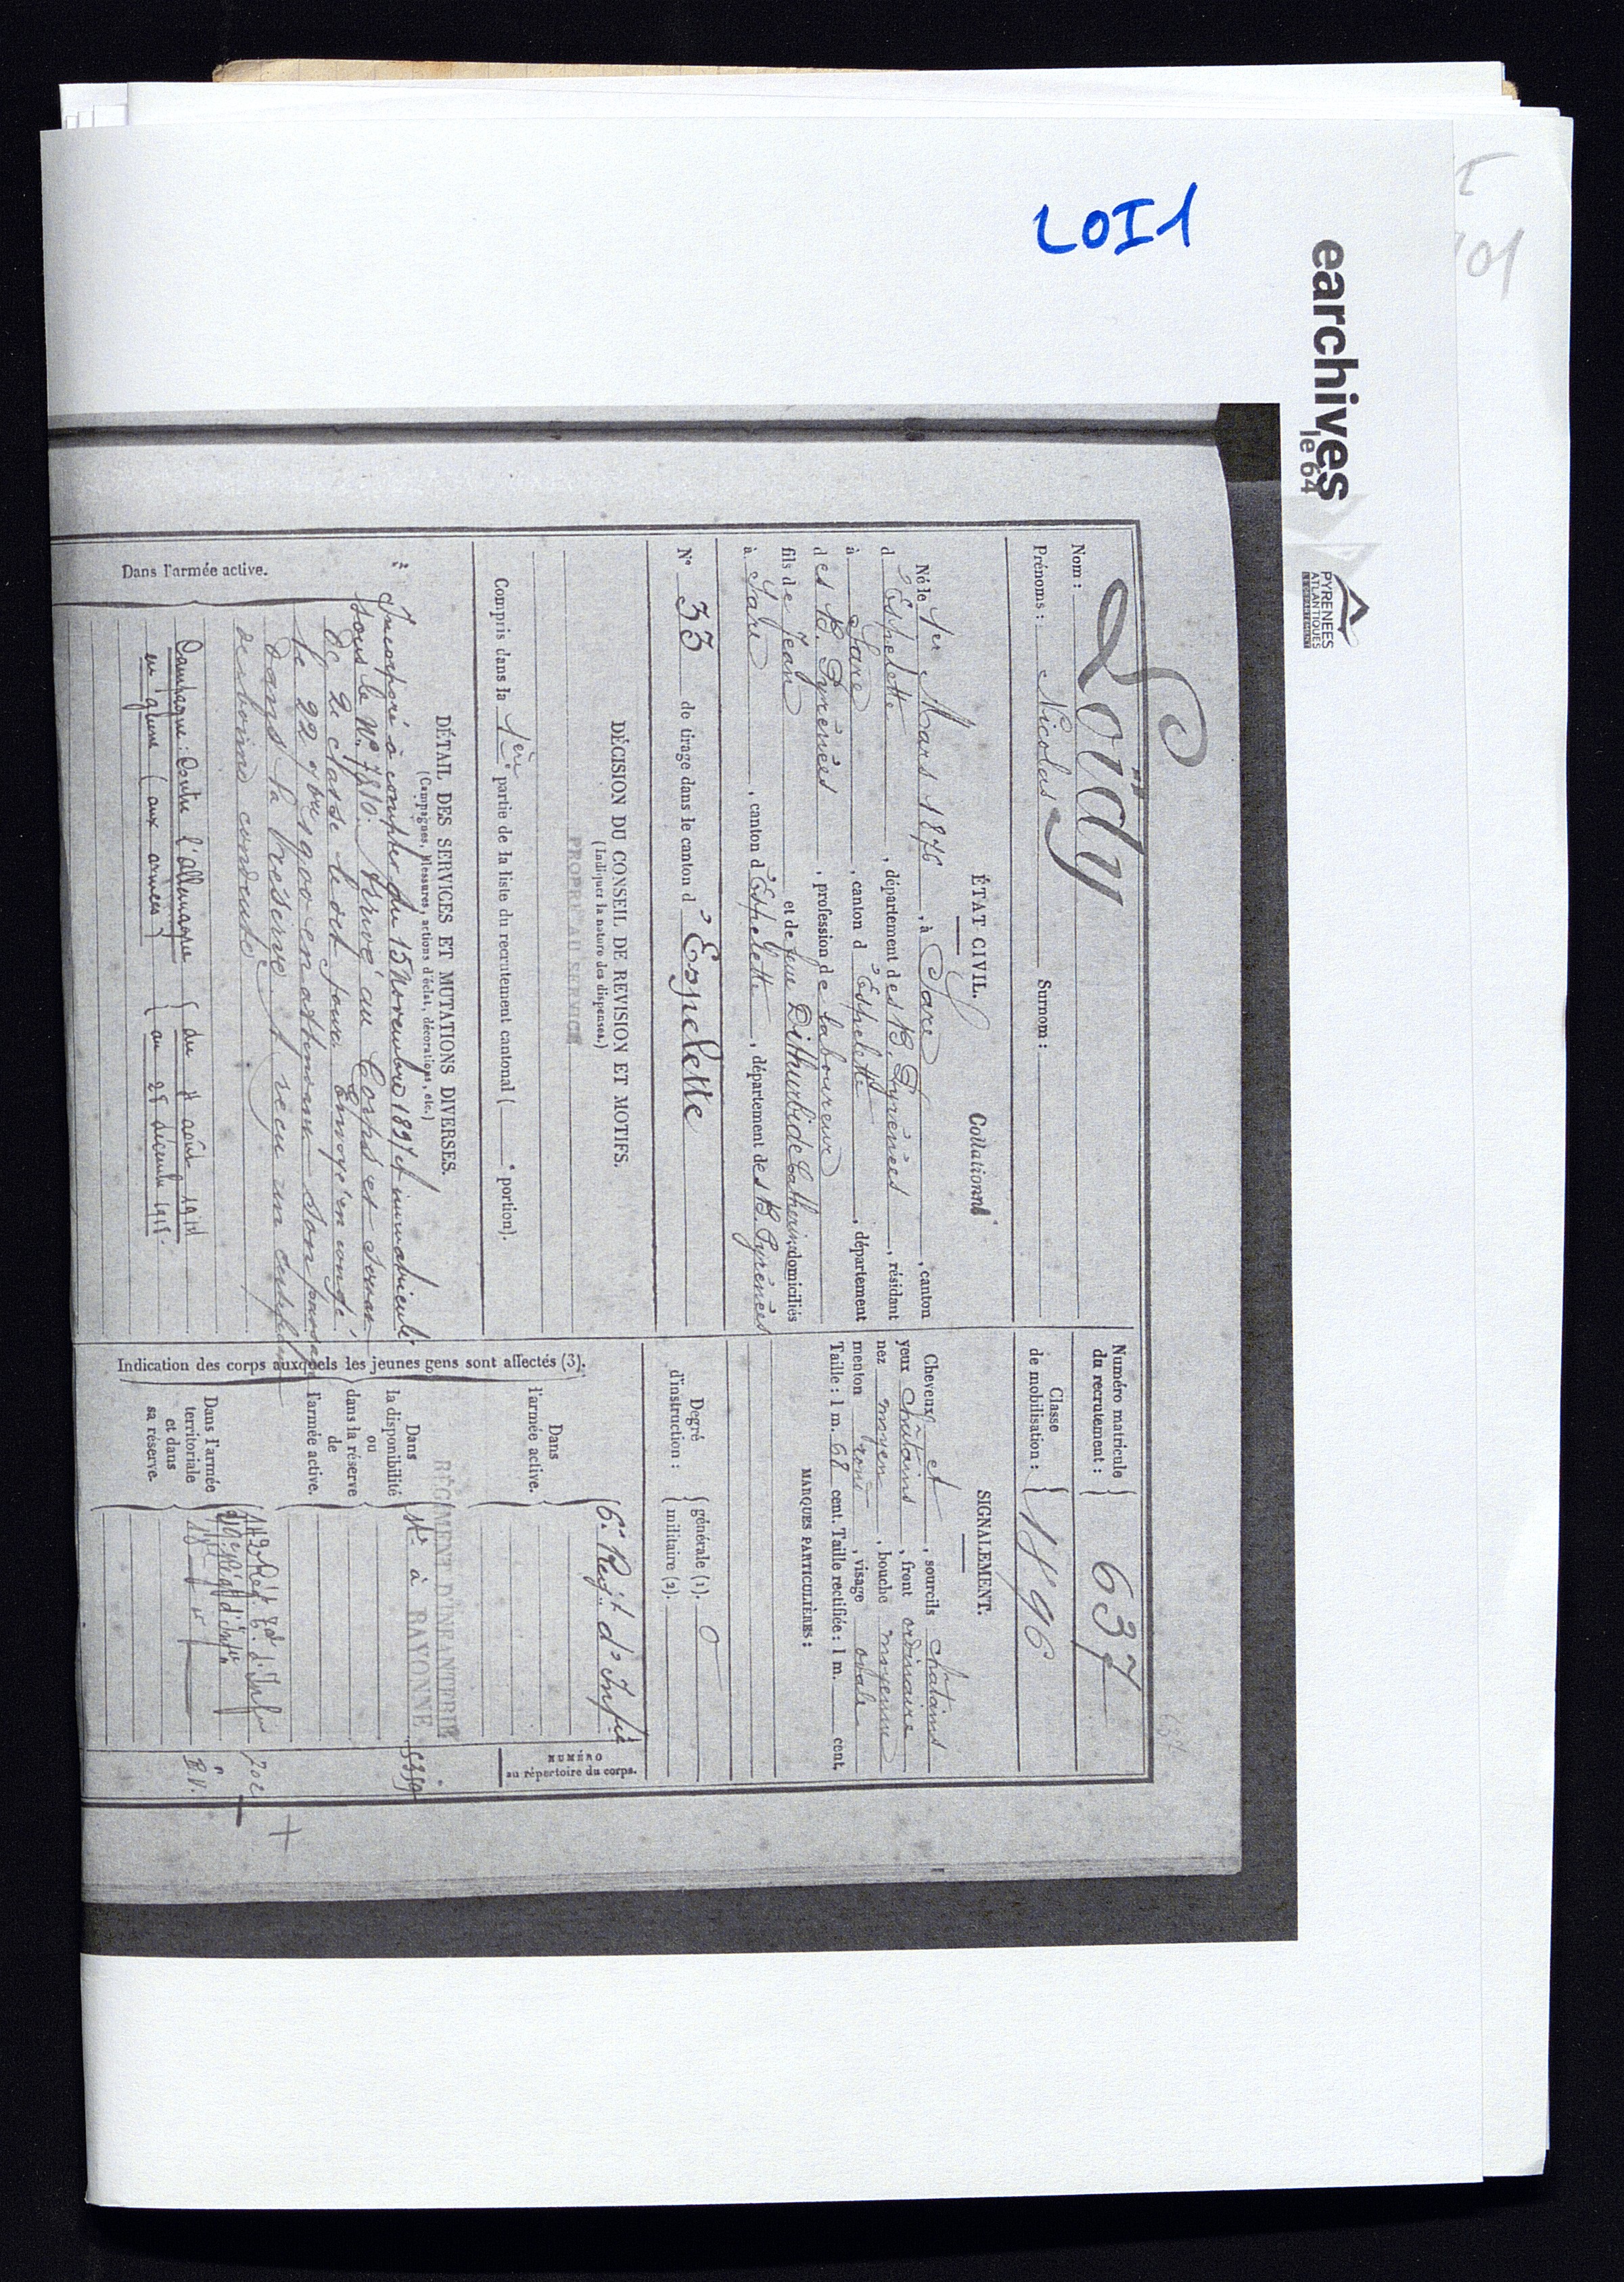 LOI1
earchives
le 64
PYRENEES
ATLANTIQUES
Nom : Loïdy
Prénoms : Nicolas Surnom :
Numéro matricule
du recrutement : 637
Classe
de mobilisation : 1896
ÉTAT CIVIL. Collationné
Né le 1er Mars 1876, à Sare, canton
d'Espelette, département des B. Pyrénées, résidant
à Sare, canton d'Espelette, département
des B. Pyrénées, profession de laboureur
fils de Jean et de feue Dithurbide Catherine domiciliés
à Sare, canton d'Espelette, département des B. Pyrénées
N° 33 de tirage dans le canton d'Espelette
SIGNALEMENT.
Cheveux et, sourcils chatains
yeux châtains, front ordinaire
nez moyen, bouche moyenne
menton rond, visage ovale
Taille : 1 m. 68 cent. Taille rectifiée : 1 m. cent.
MARQUES PARTICULIÈRES :
DÉCISION DU CONSEIL DE REVISION ET MOTIFS.
(Indiquer la nature des dispenses.)
PROPRE AU SERVICE
Compris dans la 1ère partie de la liste du recrutement cantonal ( e portion).
Degré
d'instruction :
générale (1). 0
militaire (2).
DÉTAIL DES SERVICES ET MUTATIONS DIVERSES.
(Campagnes, blessures, actions d'éclat, décorations, etc.)
Dans l'armée active.
Incorporé à compter du 15 Novembre 1897 et immatriculé
sous le N° Arrivé au Corps et soldat
de 2e classe le dit jour. Envoyé en congé
le 22 7bre 1900 en attendant son passage
dans la réserve. A reçu un certificat
de bonne conduite.
Campagne : Contre l'allemagne du août 1914
en guerre (aux armées) au 28 décembre 1915.
Indication des corps auxquels les jeunes gens sont affectés (3).
NUMÉRO
au répertoire du corps.
Dans
l'armée active.
6e Régt d'Infie
Dans
la disponibilité
ou
dans la réserve
de
l'armée active.
RÉGIMENT D'INFANTERIE
à BAYONNE
Dans l'armée
territoriale
et dans
sa réserve.
142e Régt d'Infie 202
R.V.